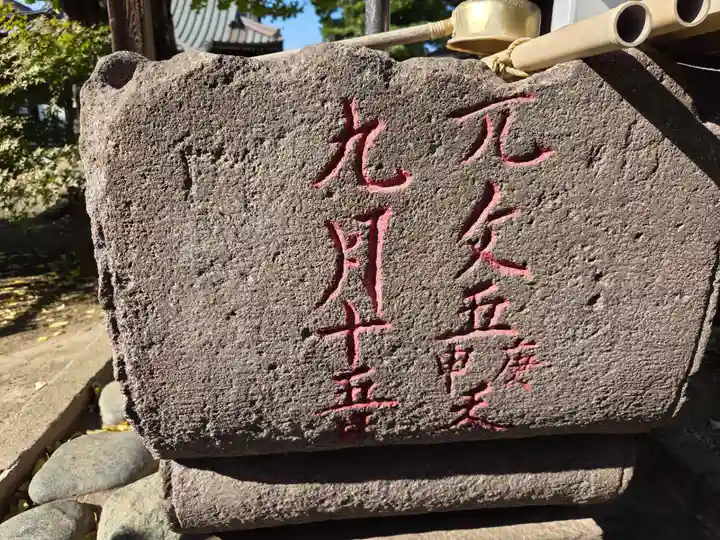 元文五庚申天
九月十五日